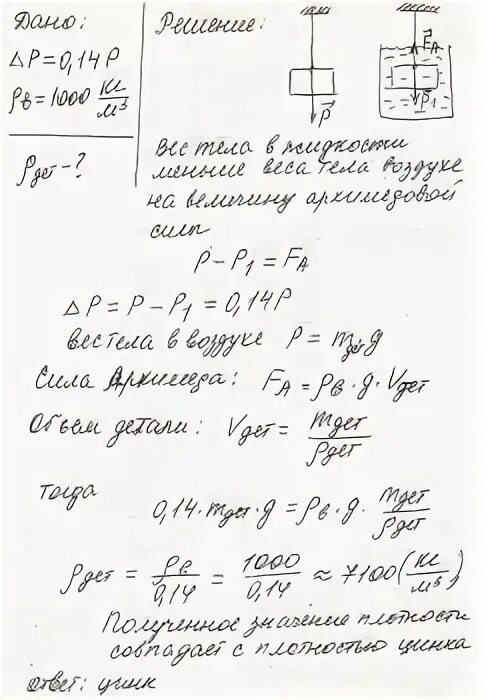 Дано:
ΔP=0,14P
ρв=1000 кг/м³
ρдет-?
Решение:
P⃗
F⃗A
P⃗1
Вес тела в жидкости
меньше веса тела воздухе
на величину архимедовой
силы
P-P1=FA
ΔP=P-P1=0,14P
вес тела в воздухе P=mдет·g
Сила Архимеда: FA=ρв·g·Vдет
Объем детали: Vдет=mдет/ρдет
тогда
0,14·mдет·g=ρв·g·mдет/ρдет
ρдет=ρв/0,14=1000/0,14≈7100(кг/м³)
Полученное значение плотности
совпадает с плотностью цинка
ответ: цинк